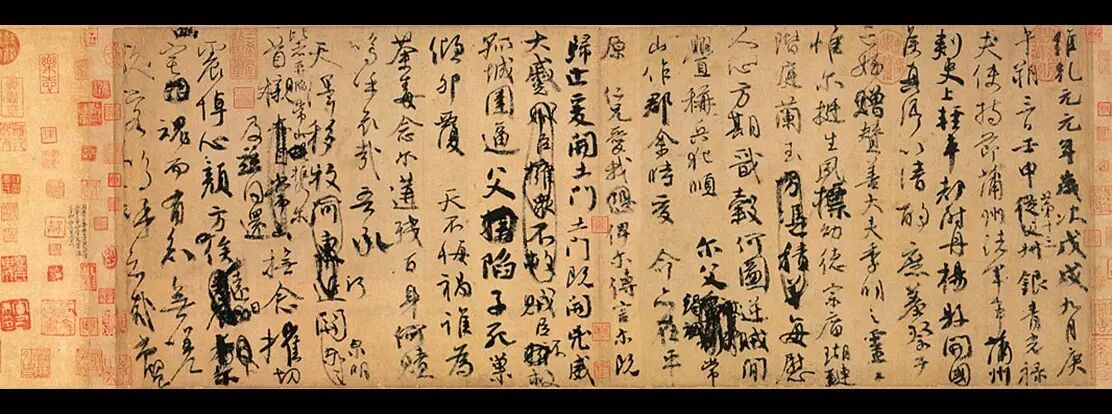 維乾元元年歲次戊戌九月庚
午朔三日壬申第十三叔銀青光祿
夫使持節蒲州諸軍事蒲州
刺史上輕車都尉丹楊縣開國
侯真卿以清酌庶羞祭于
亡姪贈贊善大夫季明之靈曰
惟爾挺生夙標幼德宗廟瑚璉
階庭蘭玉每慰
人心方期戩穀何圖逆賊間
釁稱兵犯順爾父竭誠常
山作郡余時受命亦在平
原仁兄愛我俾爾傳言爾既
歸止爰開土門土門既開兇威
大蹙賊臣不救
孤城圍逼父陷子死巢
傾卵覆天不悔禍誰為
荼毒念爾遘殘百身何贖
嗚呼哀哉吾承
天澤移牧河關泉明
比者再陷常山攜爾
首櫬及茲同還撫念摧切
震悼心顏方俟遠日
宅魂而有知無嗟
久客嗚呼哀哉尚饗